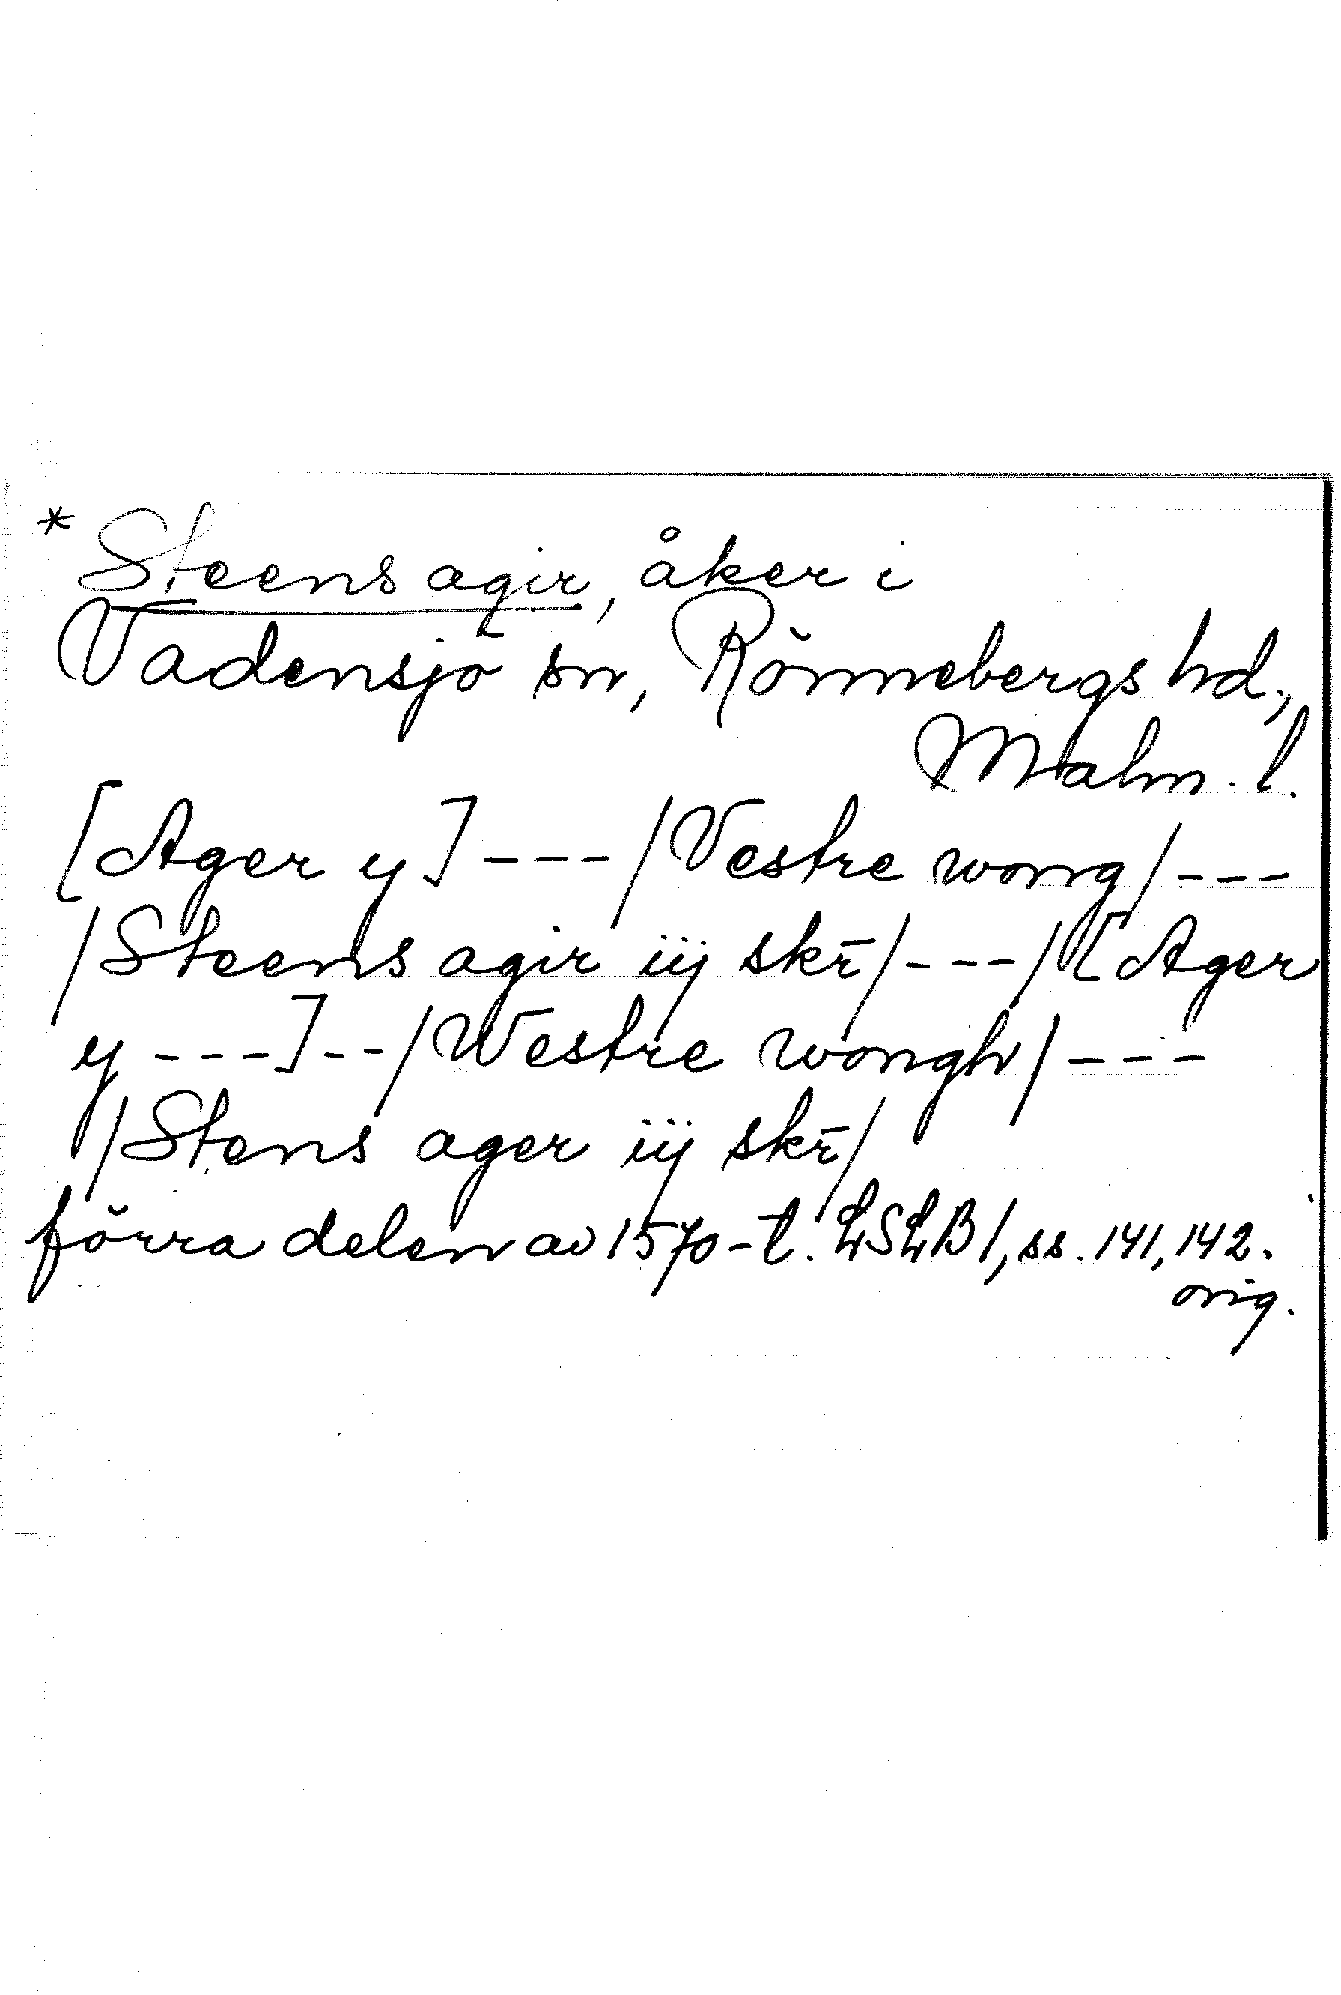 * Steens agir, åker i
Vadensjö sn, Rönnebergs hd.,
Malm. l.
[Ager y] --- / Vestre wong / ---
/ Steens agir iij skr̄ / --- / [Ager
y ---] -- / Westre wongh / ---
/ Stens ager iij skr̄ /
förra delen av 1570-t. LSLB 1, ss. 141, 142.
orig.